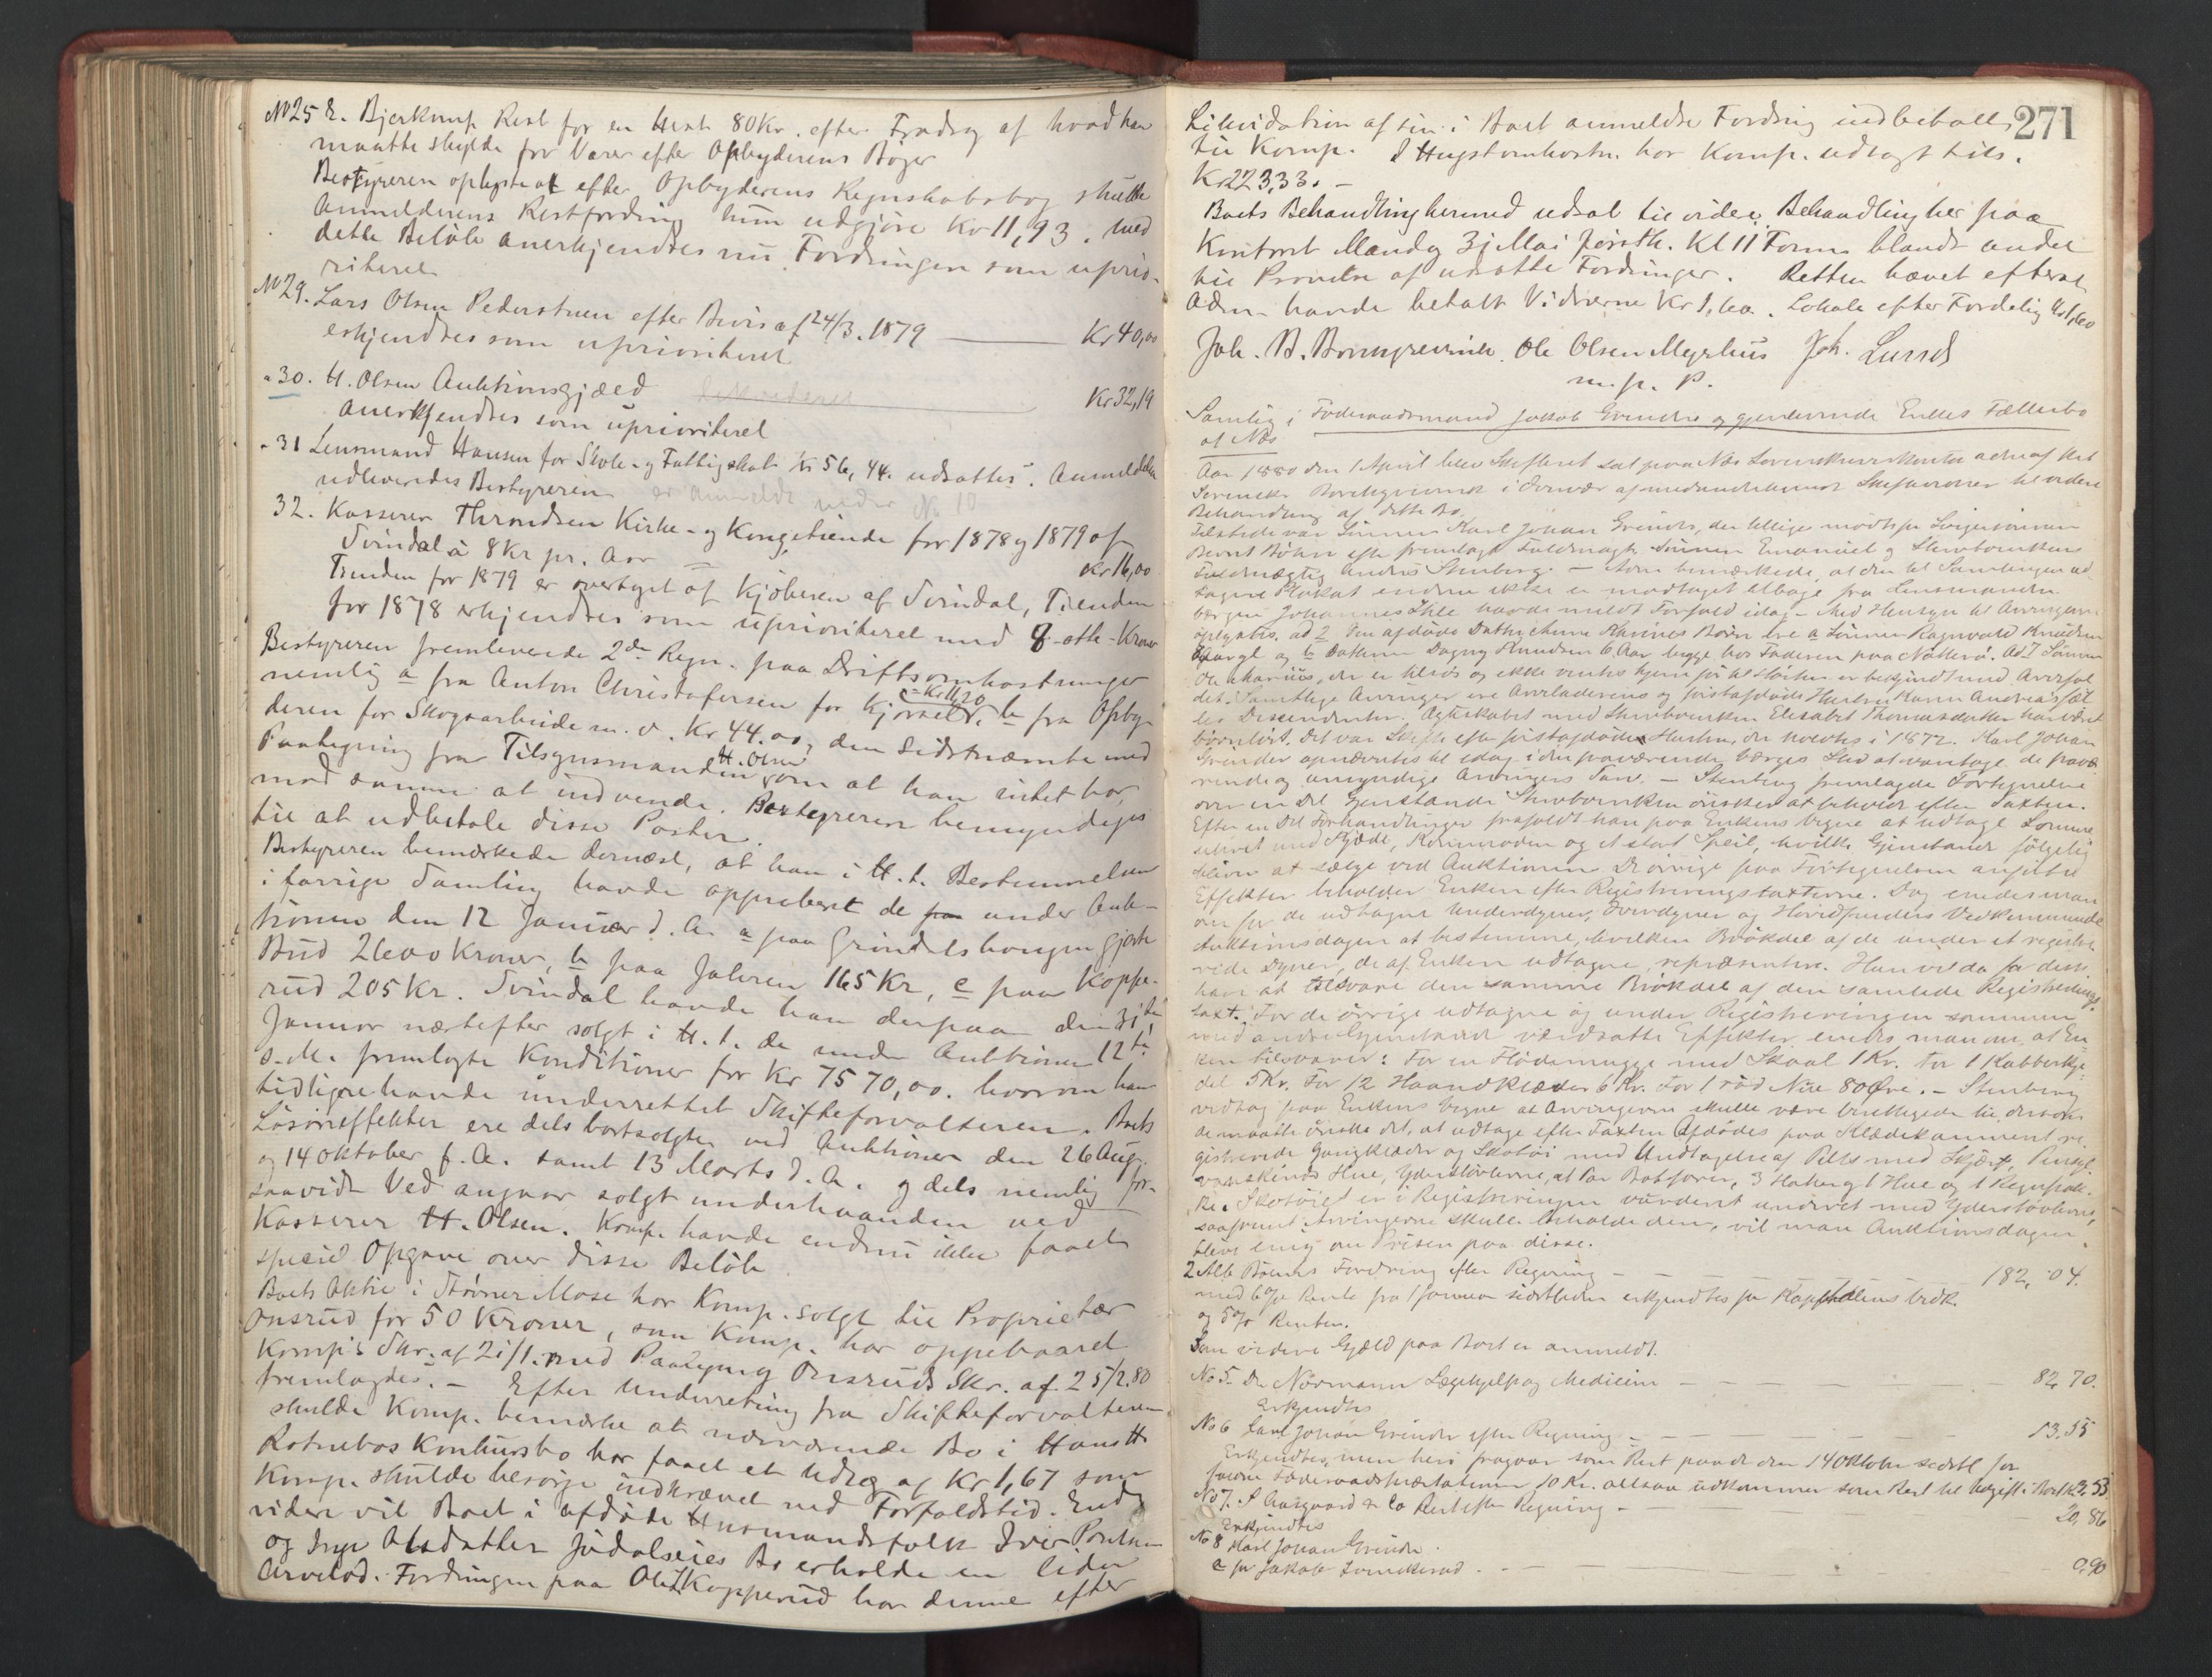 No 25 E. Bjerknup Rest for en Hest 80 Kr. efter Fradrag af hvad han
maatte skylde for Varer efter Opbyderens Bøger
Bestyreren oplyste at efter Opbyderens Regnskabsbog skulde
Anmelderens Restfordring kun udgjøre Kr 11,93. med
dette Beløb anerkjendtes nu Fordringen som uprio-
riteret
No 29. Lars Olsen Pederstuen efter Bevis af 24/3. 1879 Kr 40,00
erkjendtes som uprioriteret
" 30. H. Olsen Auktionsgjæld Kr 32,19
Anerkjendtes som uprioriteret
" 31 Lensmand Hansen for Skole- og Fattigskat Kr 56,44. udsattes. Anmeldelsen
udleveredes Bestyreren er anmeldt under No 10
32. Kasserer Throndsen Kirke- og Kongetiende for 1878 og 1879 af
Svindal à 8 Kr pr. Aar Kr 16,00
Tienden for 1879 er overtaget af Kjøberen af Svindal, Tienden
for 1878 erkjendtes som uprioriteret med 8 - otte - Kroner
Bestyreren fremleverede 2de Regn. paa Driftsomkostninger
nemlig a fra Anton Christofersen for Kjørsel - Kr 11,20 b fra Opby-
deren for Skogsarbeide m. v. Kr 44.00, den sidstnæmte med
Paategning fra Tilsynsmanden H. Olsen om at han intet har
mod samme at indvende. Bestyreren bemyndiges
til at udbetale disse Poster.
Bestyreren bemærkede dernæst, at han i H. t. Bestemmelsen
i forrige Samling havde approberet de under Auk-
tionen den 12 Januar d. A. a paa Grindelshaugen gjorte
Bud 2600 Kroner, b paa Jahren 165 Kr, c paa Koppe-
rud 205 Kr. Svindal havde han derpaa den 31te
Januar næstefter solgt i H. t. de under Auktionen 12te
s. M. fremlagte Konditioner for Kr 7570,00. hvorom han
tidligere havde underrettet Skifteforvalteren. Boets
Løsøreffekter ere dels bortsolgte ved Auktioner den 26 Aug.
og 14 Oktober f. A. samt 13 Marts d. A. og dels nemlig for-
saavidt Ved angaar solgt underhaanden ved
Kasserer H. Olsen. Komp. havde endnu ikke faaet
speciel Opgave over disse Beløb
Boets Aktie i Størner Mose har Komp. solgt til Proprietær
Onsrud for 50 Kroner, som Komp. har oppebaaret
Komp's Skr. af 21/1. med Paategning Onsruds Skr. af 25/2.80
fremlagdes. - Efter Underretning fra Skifteforvalteren
skulde Komp. bemærke at nærværende Bo i Hans H.
Rotnebos Konkursbo har faaet et Udlæg af Kr 1,67 som
Komp. skulde besørge indkrævet ved Forfaldstid. End-
videre vil Boet i afdøde Husmandsfolk Iver Poulsen
og Inger Olsdatter Judalseies Bo erholde en liden
Arvelod. Fordringen paa Ole Kopperud har denne efter
271
Likvidation af sin i Boet anmeldte Fordring indbetalt
til Komp. I Hugstomkostn. har Komp. udlagt tils.
Kr 223,33. -
Boets Behandling hermed udsat til videre Behandling her paa
Kontoret Mandag 31 Mai førstk. Kl 11 Form. blandt andet
til Prøvelse af udsatte Fordringer. Retten hævet efterat
Adm. havde betalt Vidnerne Kr 1,60. Lokale efter Fordeling Kr 1,60
Joh. B. Ole Olsen Myrhus Joh. Lund
m. p. P.
Samling i Føderaadsmand Jakob Grinders og gjenlevende Enkes Fællesbo
af Næs
Aar 1880 den 1 April blev Skifteret sat paa Næs Sorenskriverkontor adm af det
Sorenskr. i Nærvær af medundertegnede Skiftevidner til videre
Behandling af dette Bo.
Tilstede var Sønnen Karl Johan Grinder, der tillige mødte for Svigersønnen
Bernt Bøhn efter fremlagt Fuldmagt, Sønnen Emanuel og Stervboenkens
Fuldmægtig Anders Stenberg. - Adm bemærkede, at den til Samlingen ud-
tagne Plakat endnu ikke er modtaget tilbage fra Lensmanden.
Værgen Johannes Ihle havde meldt Forfald idag. - Med Hensyn til Arvingerne
oplystes, ad 2 Den afdøde Datter Karines Børn ere a Sønnen Ragnvald Knudsen
og b Datteren Dagny Knudsen 6 Aar begge hos Faderen paa Nøtterø. Ad 7 Sønnen
Ole Makarius, der er tilsjøs og ikke ventes hjem før til Høsten er bekjendt med Arvefal
det. Samtlige Arvinger ere Arveladerens og førstafdøde Hustru Karen Andreasd. fæl
les Descendenter. Ægteskabet med Stervboenken Elisabet Thomasdatter har været
børnløst. Det var Skifte efter førstafdøde Hustru, der holdtes i 1872. Karl Johan
Grinder opnævntes til idag i den fraværende Værges Sted at varetage de fravæ
rende og umyndige Arvingers Tarv. - Stenberg fremlagde Fortegnelse
over en Del Gjenstande Stervboenken ønsker at beholde efter Taxten.
Efter en Del Forhandlinger frafaldt han paa Enkens Vegne at udtage Lomme
uhret med Kjæde, Kommoden og et stort Speil, hvilke Gjenstande følgelig
bliver at sælge ved Auktionen. De øvrige paa Fortegnelsen anførte
Effekter beholder Enken efter Registreringstaxterne. Dog enedes man
om for de udtagne Underdyner, Overdyner og Hovedpuders Vedkommende
Auktionsdagen at bestemme, hvilken Brøkdel af de under et registre
rede Dyner, de af Enken udtagne, repræsentere. Hun vil da for disse
have at tilsvare den samme Brøkdel af den samlede Registrerings
taxt. For de øvrige udtagne og under Registreringen sammen
med andre Gjenstande værdsatte Effekter enedes man om, at En-
ken tilsvarer: For en Flødemugge med Skaal 1 Kr. for 1 Kobberkje-
del 5 Kr. For 12 Haandklæder 6 Kr. For 1 rød Nie 80 Øre. - Stenberg
vedtog paa Enkens Vegne at Arvingerne skulle være berettigede til dersom
de maatte ønske det, at udtage efter Taxten Afdødes paa Klædekammeret re
gistrerede Gangklæder og Skotøi med Undtagelse af Pels med Skjærf,
vaskeskinds Hue, Yderstøvlerne, et Par Botforer, 3 og 1 Hue og 1 Regnfrak
ke. Skotøiet er i Registreringen vurderet underet med Yderstøvlerne,
saafremt Arvingerne skulle beholde dem, vil man Auktionsdagen
blive enig om Prisen paa disse.
2 Fordring efter Regning 182,04.
med 6% Rente fra 1 Januar sidstleden erkjendtes for Kapitalens Vedk.
og 5% Renten.
Som videre Gjæld paa Boet er anmeldt.
No 5. Dr Nörmann Lægehjelp og Medicin 82,70.
Erkjendtes
No 6 Carl Johan Grinder efter Regning 13.55
Erkjendtes, men heri fragaar som Rest paa de den 14 Oktober sidstl for
faldne Føderaadspræstationer 10 Kr. altsaa udkommer som Rest til Udgift i Boet Kr 3.55
No 7. P Aasgaard & Co Rest efter Regning 20,86
Erkjendtes
No 8 Karl Johan Grinder
a for Jakob 0,90